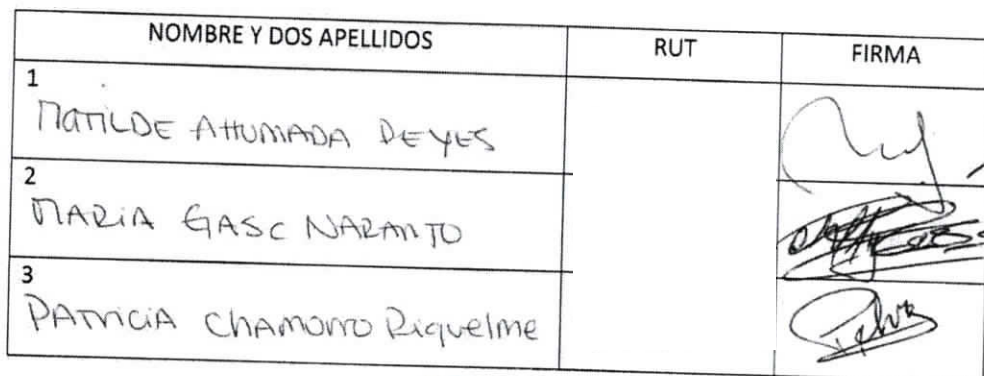 NOMBRE Y DOS APELLIDOS RUT FIRMA
1
MATILDE AHUMADA REYES
2
MARIA GASC NARANJO
3
PATRICIA CHAMORRO Riquelme